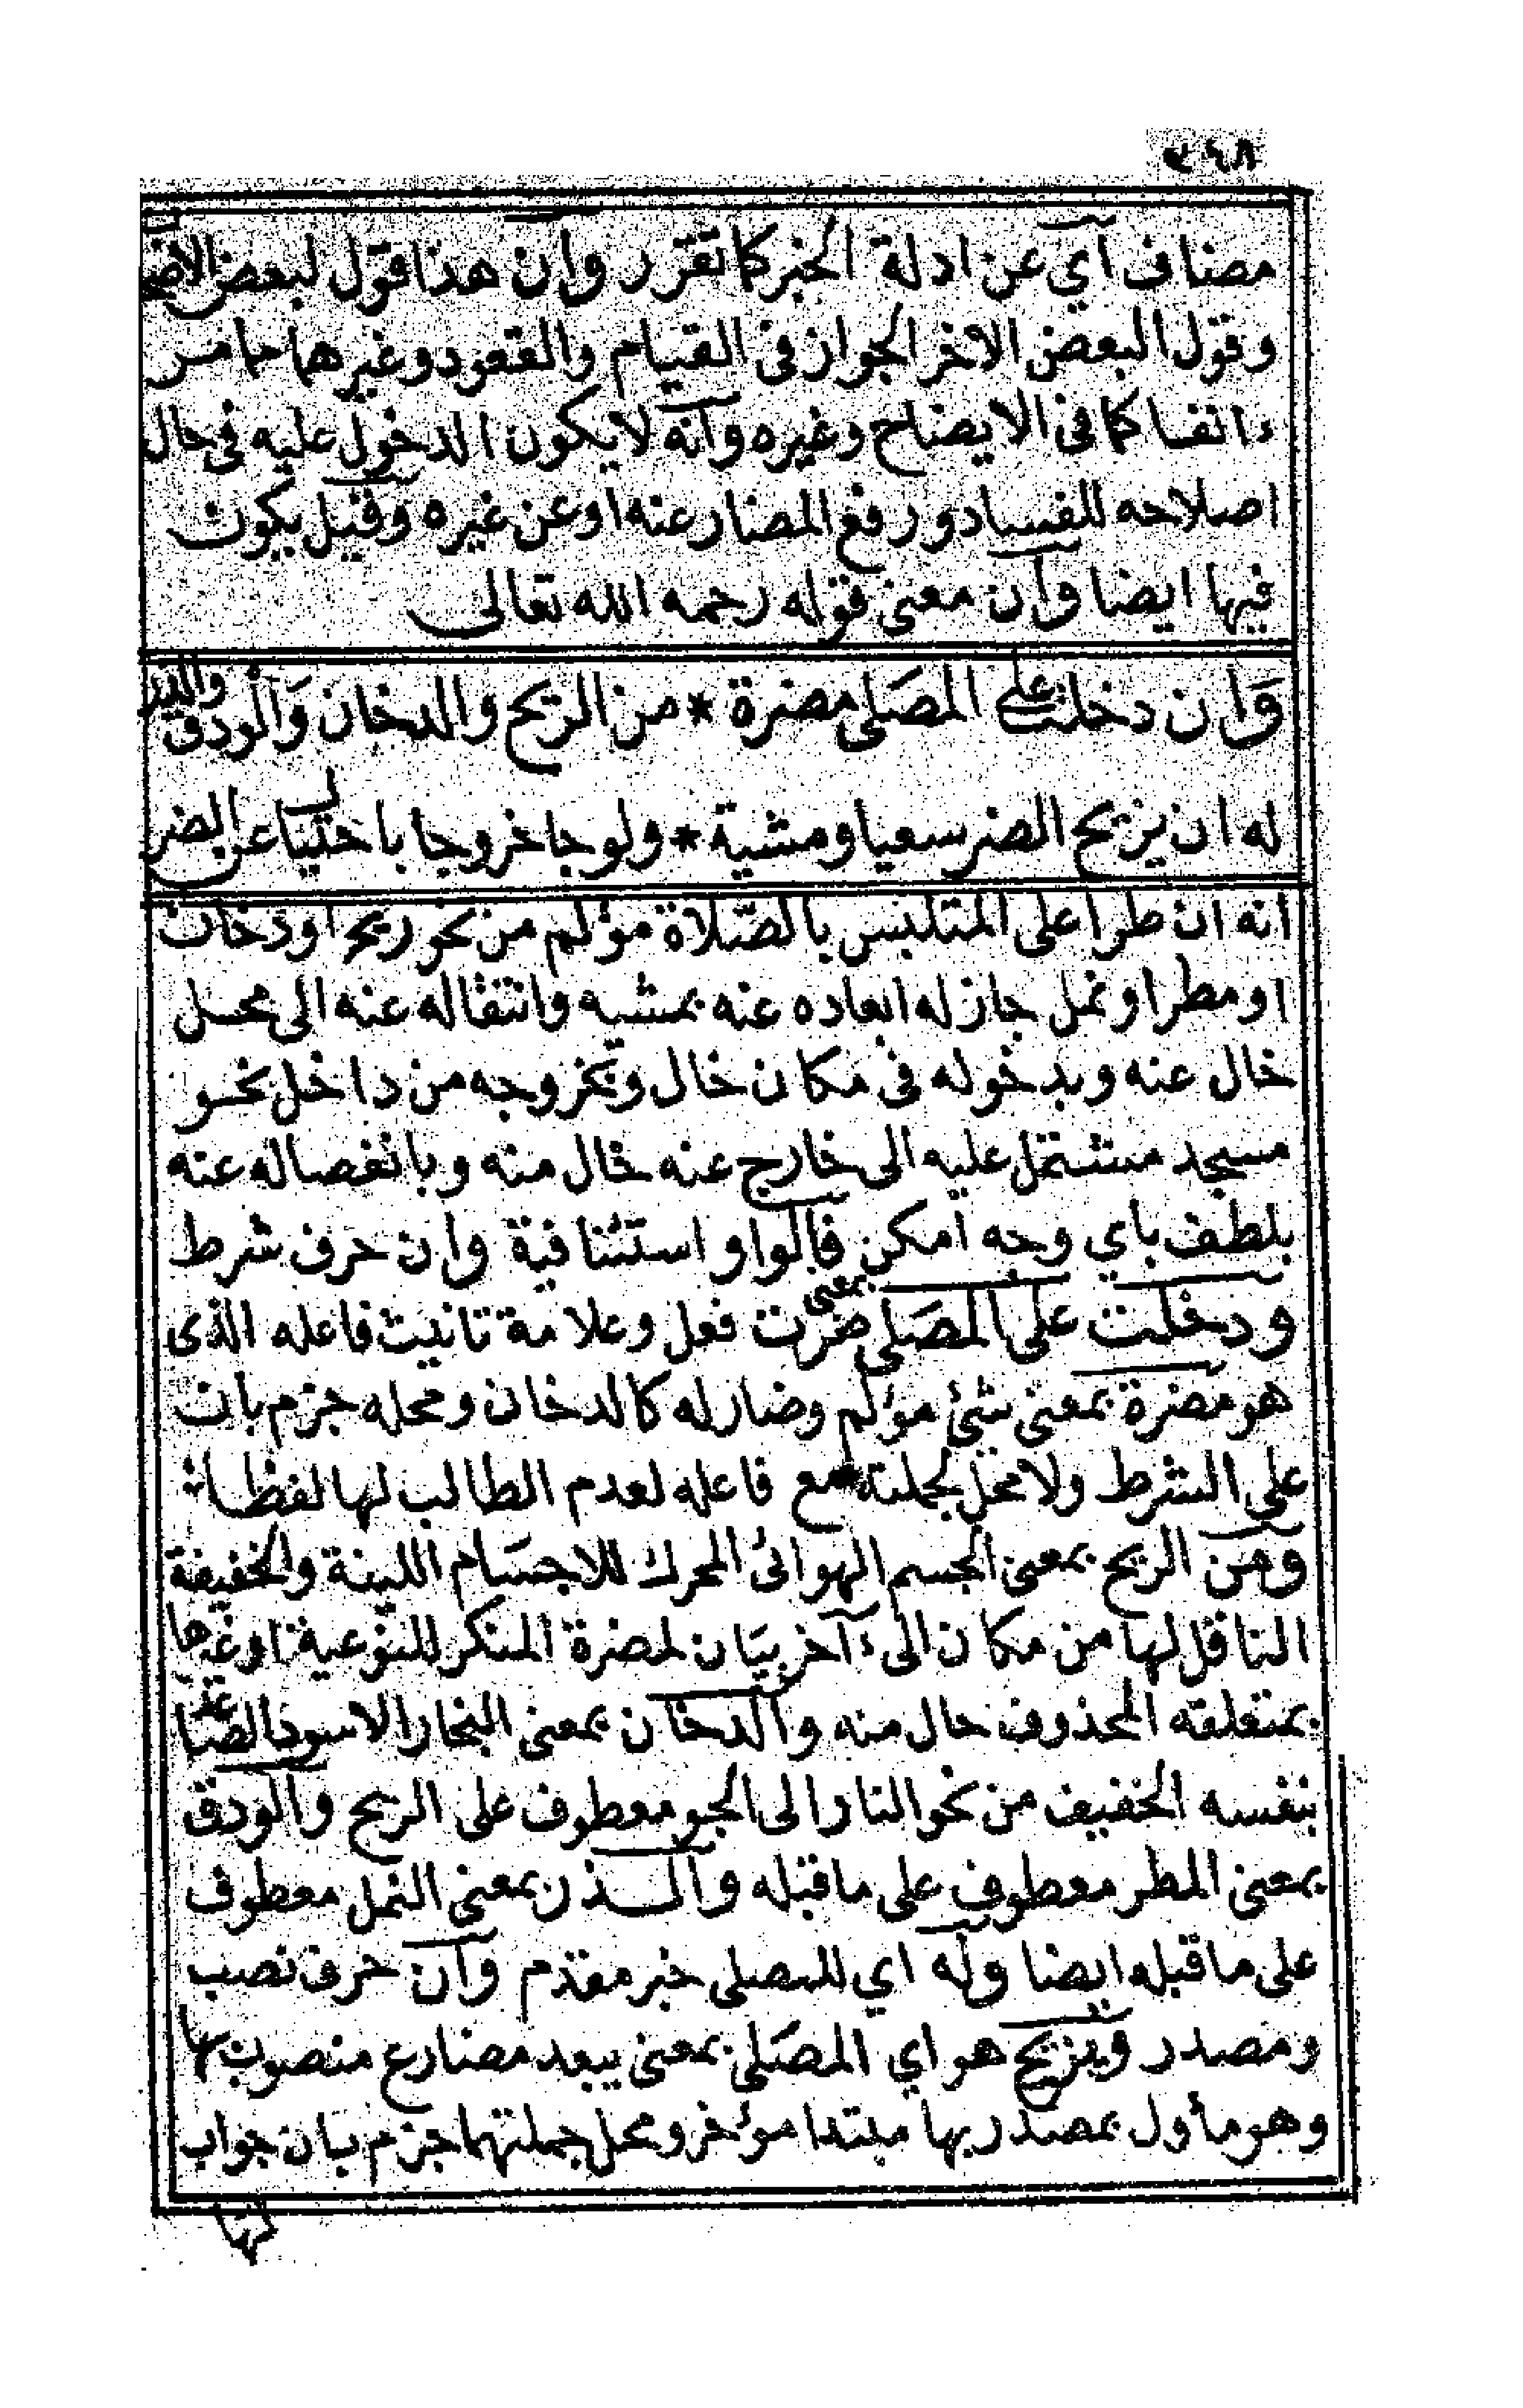 مضاف اي عن ادلة الخبر كما تقرر وان هذا قول لبعض
وقول البعض الاخر الجواز فى القيام والقعود وغيرهما مما مر
ءانفا كما فى الايضاح وغيره وانه لا يكون الدخول عليه فى حال
اصلاحه للفساد ورفع المضار عنه او عن غيره وقيل يكون
فيها ايضا وان معنى قوله رحمه الله تعالى
وَان دخلت على المصَلي مضرة * من الريح والدخان وَالودق والذر
له ان يزيح الضر سعيا ومشية * ولو جا خروجا باحتيا عن الضر
انه ان طرا على المتلبس بالصّلاة مؤلم من نحو ريح او دخان
او مطر او نمل جاز له ابعاده عنه بمشيه وانتقاله عنه الى محل
خال عنه وبدخوله فى مكان خال وبخروجه من داخل نحو
مسجد مشتمل عليه الى خارج عنه خال منه وبانفصاله عنه
بلطف باي وجه امكن فالواو استئنافية وان حرف شرط
ودخلت على المصَلي بمعنى ضرت فعل وعلامة تانيث فاعله الذى
هو مضرة بمعنى شئ مؤلم وضار له كالدخان ومحله جزم بان
على الشرط ولا محل لجملته مع فاعله لعدم الطالب لها لفظا
ومن الريح بمعنى الجسم الهوائى المحرك للاجسَام اللينة والخفيفة
الناقل لها من مكان الى ءاخر بيَان لمضرة المنكر للنوعية او غيرها
بمتعلقه المحذوف حال منه والدخان بمعنى البخار الاسود الصاعد
بنفسه الخفيف من نحو النار الى الجو معطوف على الريح والودق
بمعنى المطر معطوف على ما قبله والـذر بمعنى النمل معطوف
على ما قبله ايضا وله اي للمصلى خبر مقدم وان حرف نصب
ومصدر ويزيح هو اي المصَلي بمعنى يبعد مضارع منصوب بها
وهو مأول بمصدر بها مبتدا مؤخر ومحل جملتهما جزم بان جواب
لها